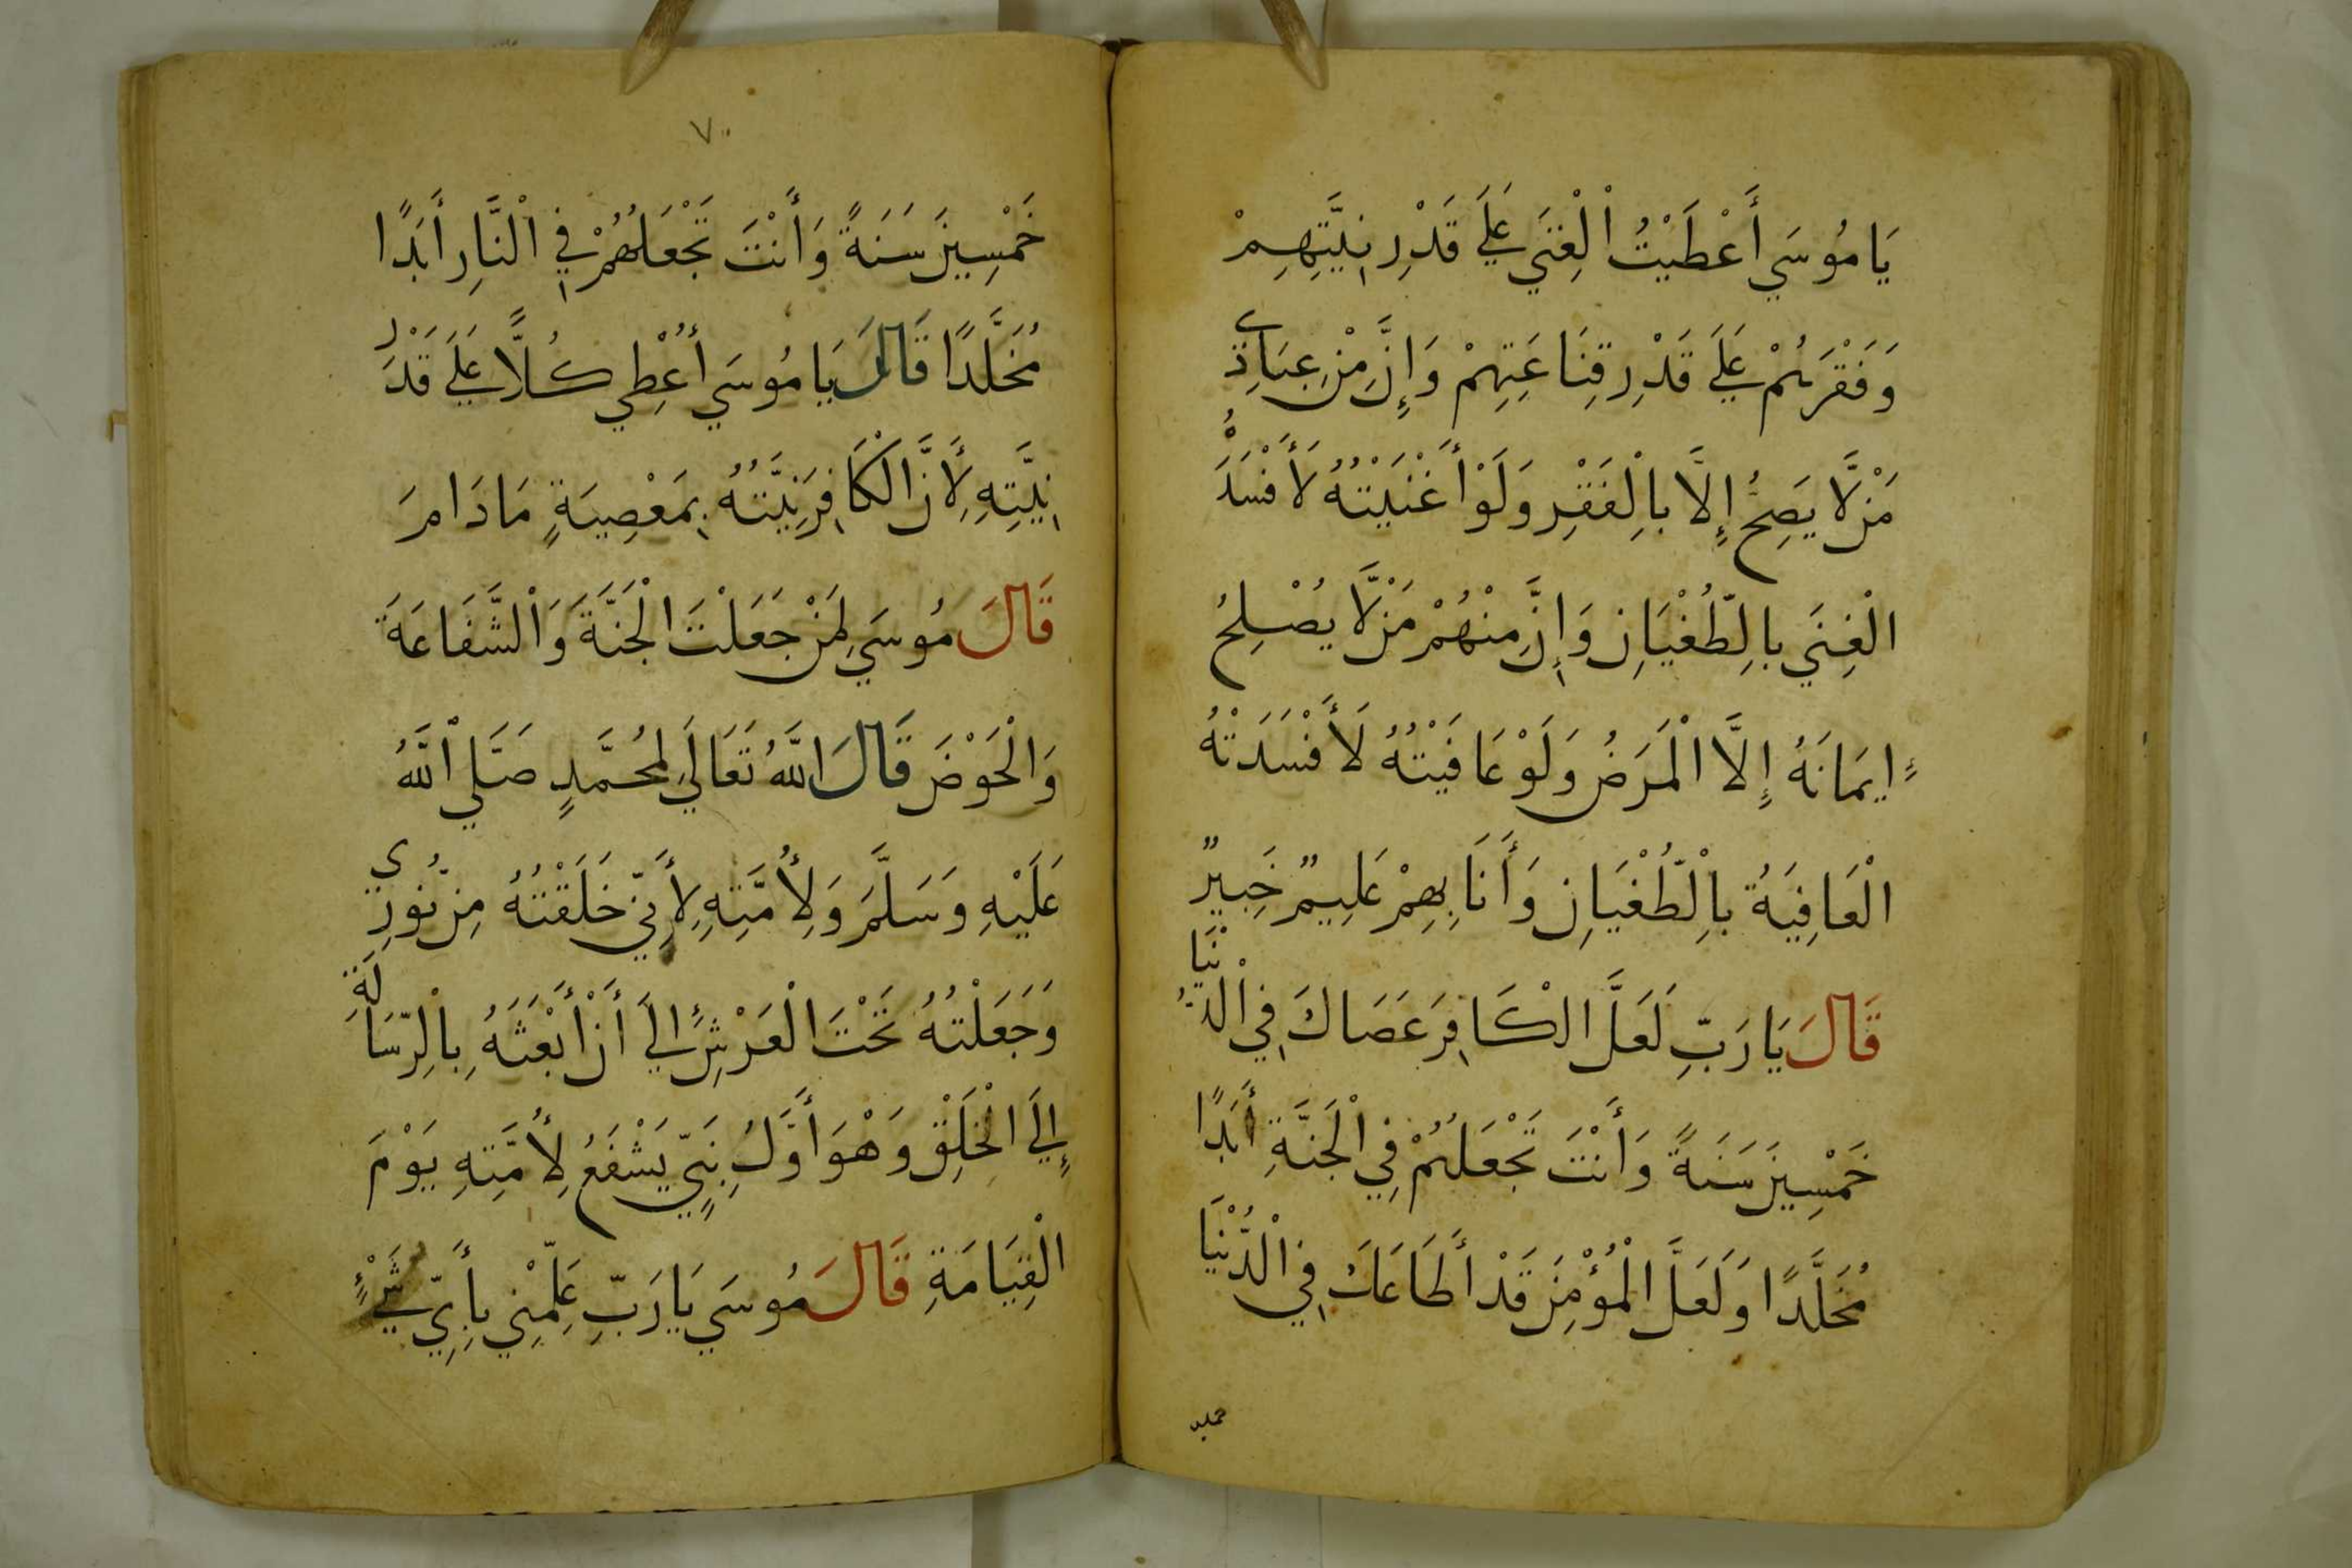 يَا مُوسَي أَعْطَيْتُ الْغِنَي عَلَي قَدْرِ نِيَّتِهِمْ
وَفَقْرَهُمْ عَلَي قَدْرِ قِنَاعَتِهِمْ وَإِنَّ مِنْ عِبَادِي
مَنْ لَّا يَصِحُّ إِلَّا بِالْفَقْرِ وَلَوْ أَغْنَيْتُهُ لَأَفْسَدَهُ
الْغِنَي بِالطُّغْيَانِ وَإِنَّ مِنْهُمْ مَنْ لَّا يُصْلِحُ
إِيمَانَهُ إِلَّا الْمَرَضُ وَلَوْ عَافَيْتُهُ لَأَفْسَدَتْهُ
الْعَافِيَةُ بِالْطُّغْيَانِ وَأَنَا بِهِمْ عَلِيمٌ خَبِيرٌ
قَالَ يَا رَبِّ لَعَلَّ الْكَافِرَ عَصَاكَ فِي الدُّنْيَا
خَمْسِينَ سَنَةً وَأَنْتَ تَجْعَلُهُمْ فِي الْجَنَّةِ أَبَدًا
مُخَلَّدًا وَلَعَلَّ الْمُؤْمِنَ قَدْ أَطَاعَكَ فِي الْدُّنْيَا
٧٠
خَمْسِينَ سَنَةً وَأَنْتَ تَجْعَلُهُمْ فِي الْنَّارِ أَبَدًا
مُخَلَّدًا قَالَ يَا مُوسَي أُعْطِي كُلًّا عَلَي قَدْرِ
نِيَّتِهِ لِأَنَّ الْكَافِرَ نِيَّتُهُ بِمَعْصِيَةٍ مَا دَامَ
قَالَ مُوسَي لِمَنْ جَعَلْتَ الْجَنَّةَ وَالْشَّفَاعَةَ
وَالْحَوْضَ قَالَ اللَّهُ تَعَالَي لِمُحَمَّدٍ صَلَّي الْلَّهُ
عَلَيْهِ وَسَلَّمَ وَلِأُمَّتِهِ لِأَنِّي خَلَقْتُهُ مِنْ نُورِي
وَجَعَلْتُهُ تَحْتَ الْعَرْشِ إِلَي أَنْ أَبْعَثَهُ بِالْرِّسَالَةِ
إِلَي الْخَلْقِ وَهْوَ أَوَّلُ نَبِيٍّ يَشْفَعُ لِأُمَّتِهِ يَوْمَ
الْقِيَامَةِ قَالَ مُوسَي يَا رَبِّ عَلِّمْنِي بِأَيِّ شَيْءٍ